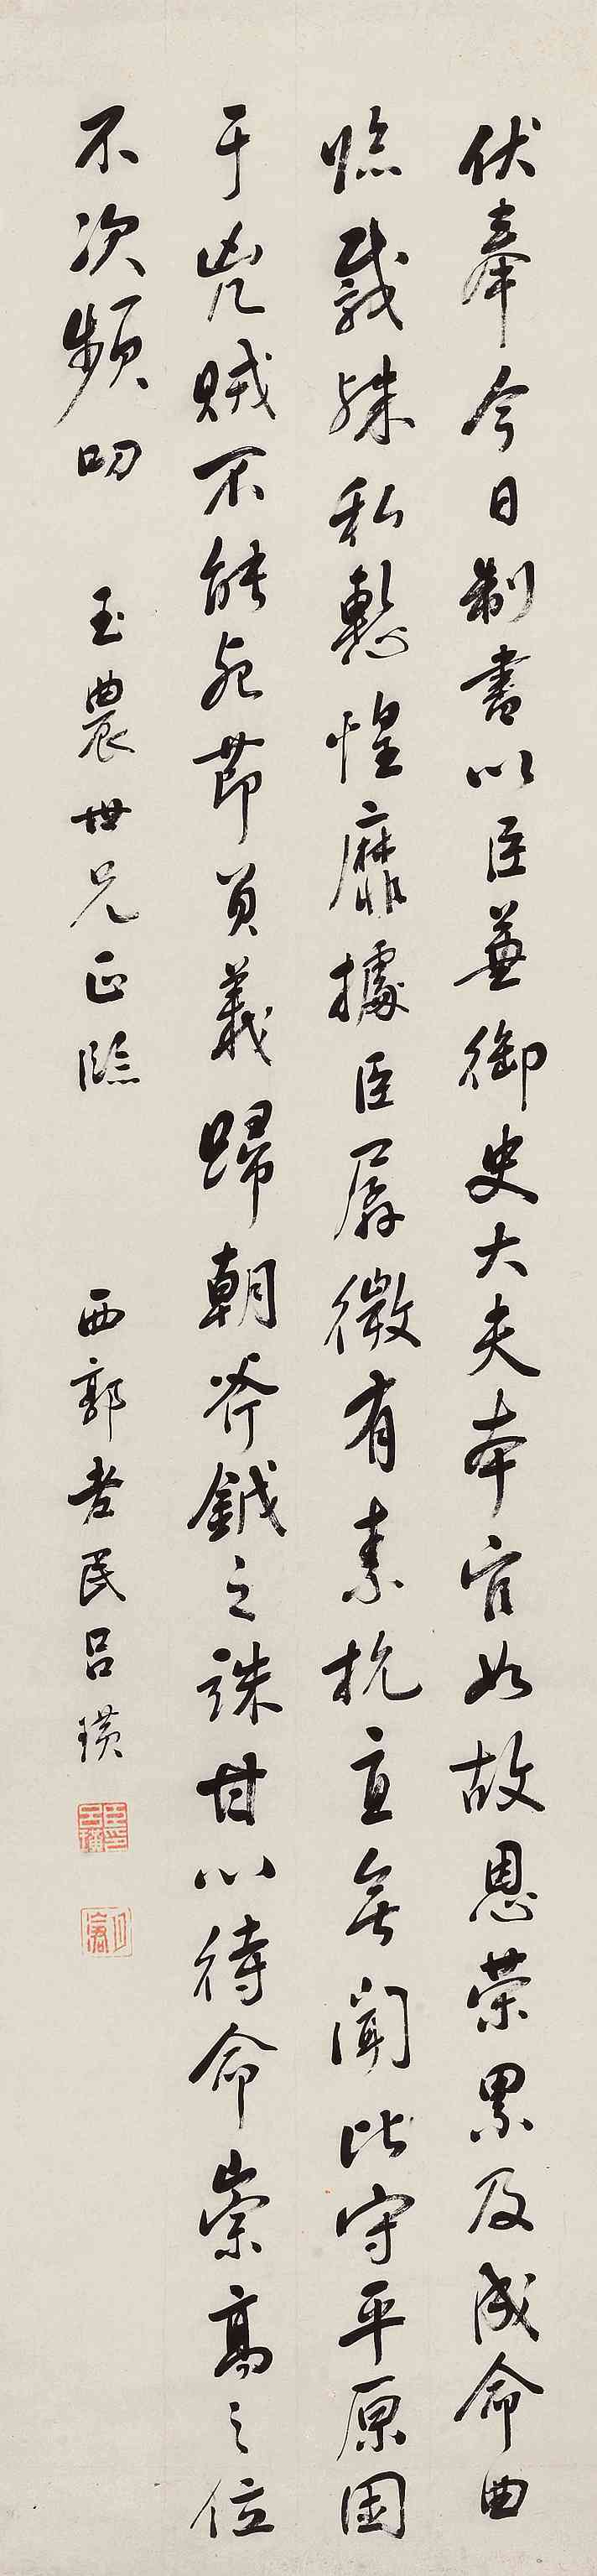 伏奉今日制書以臣兼御史大夫本官如故恩荣累及成命曲
臨戴殊私慙惶靡據臣孱微有素抗直無聞比守平原困
于兇賊不能死節負義歸朝斧鉞之誅甘心待命崇高之位
不次頻叨 玉農世兄正臨 西郭老民呂璜